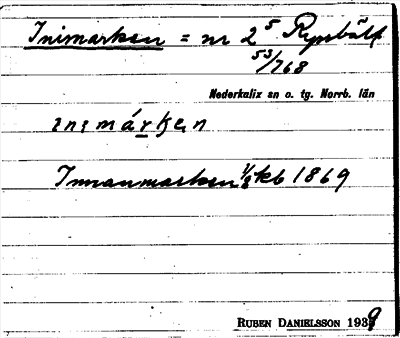 Inimarken = nr 2⁵ Rysbält
53/768
Nederkalix sn o. tg. Norrb. län
inimárken
Innanmarken 1/8 kb 1869
RUBEN DANIELSSON 1939